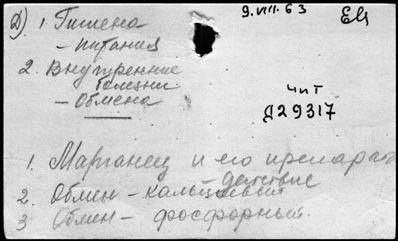 9.VIII.63
Д) 1. Гигиена
- питания
2. Внутренние
болезни
- Обмена
чит
Д29317
1. Марганец и его препарат
действие
2. Обмен - кальциевый
3 Обмен - фосфорный.